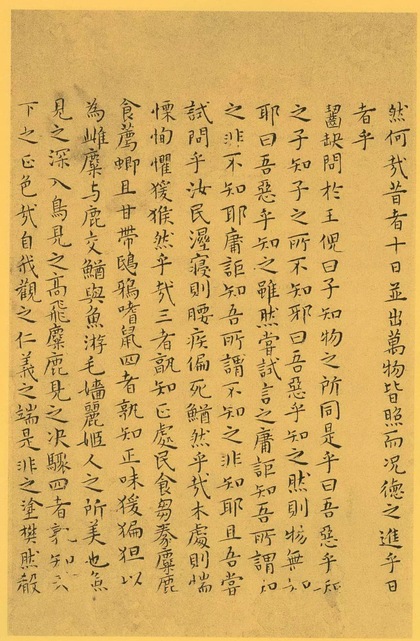 然何哉昔者十日並出萬物皆照而况德之進乎日
者乎
齧缺問於王倪曰子知物之所同是乎曰吾惡乎知
之子知子之所不知邪曰吾惡乎知之然則物無知
耶曰吾惡乎知之雖然嘗試言之庸詎知吾所謂知
之非不知耶庸詎知吾所謂不知之非知耶且吾嘗
試問乎汝民溼寢則腰疾偏死鰌然乎哉木處則惴
慄恂懼猨猴然乎哉三者孰知正處民食芻豢麋鹿
食薦蝍且甘帶鴟鴉嗜鼠四者孰知正味猨猵狙以
為雌麋与鹿交鰌與魚游毛嬙麗姬人之所美也魚
見之深入鳥見之高飛麋鹿見之决驟四者孰知天
下之正色哉自我觀之仁義之端是非之塗樊然殽